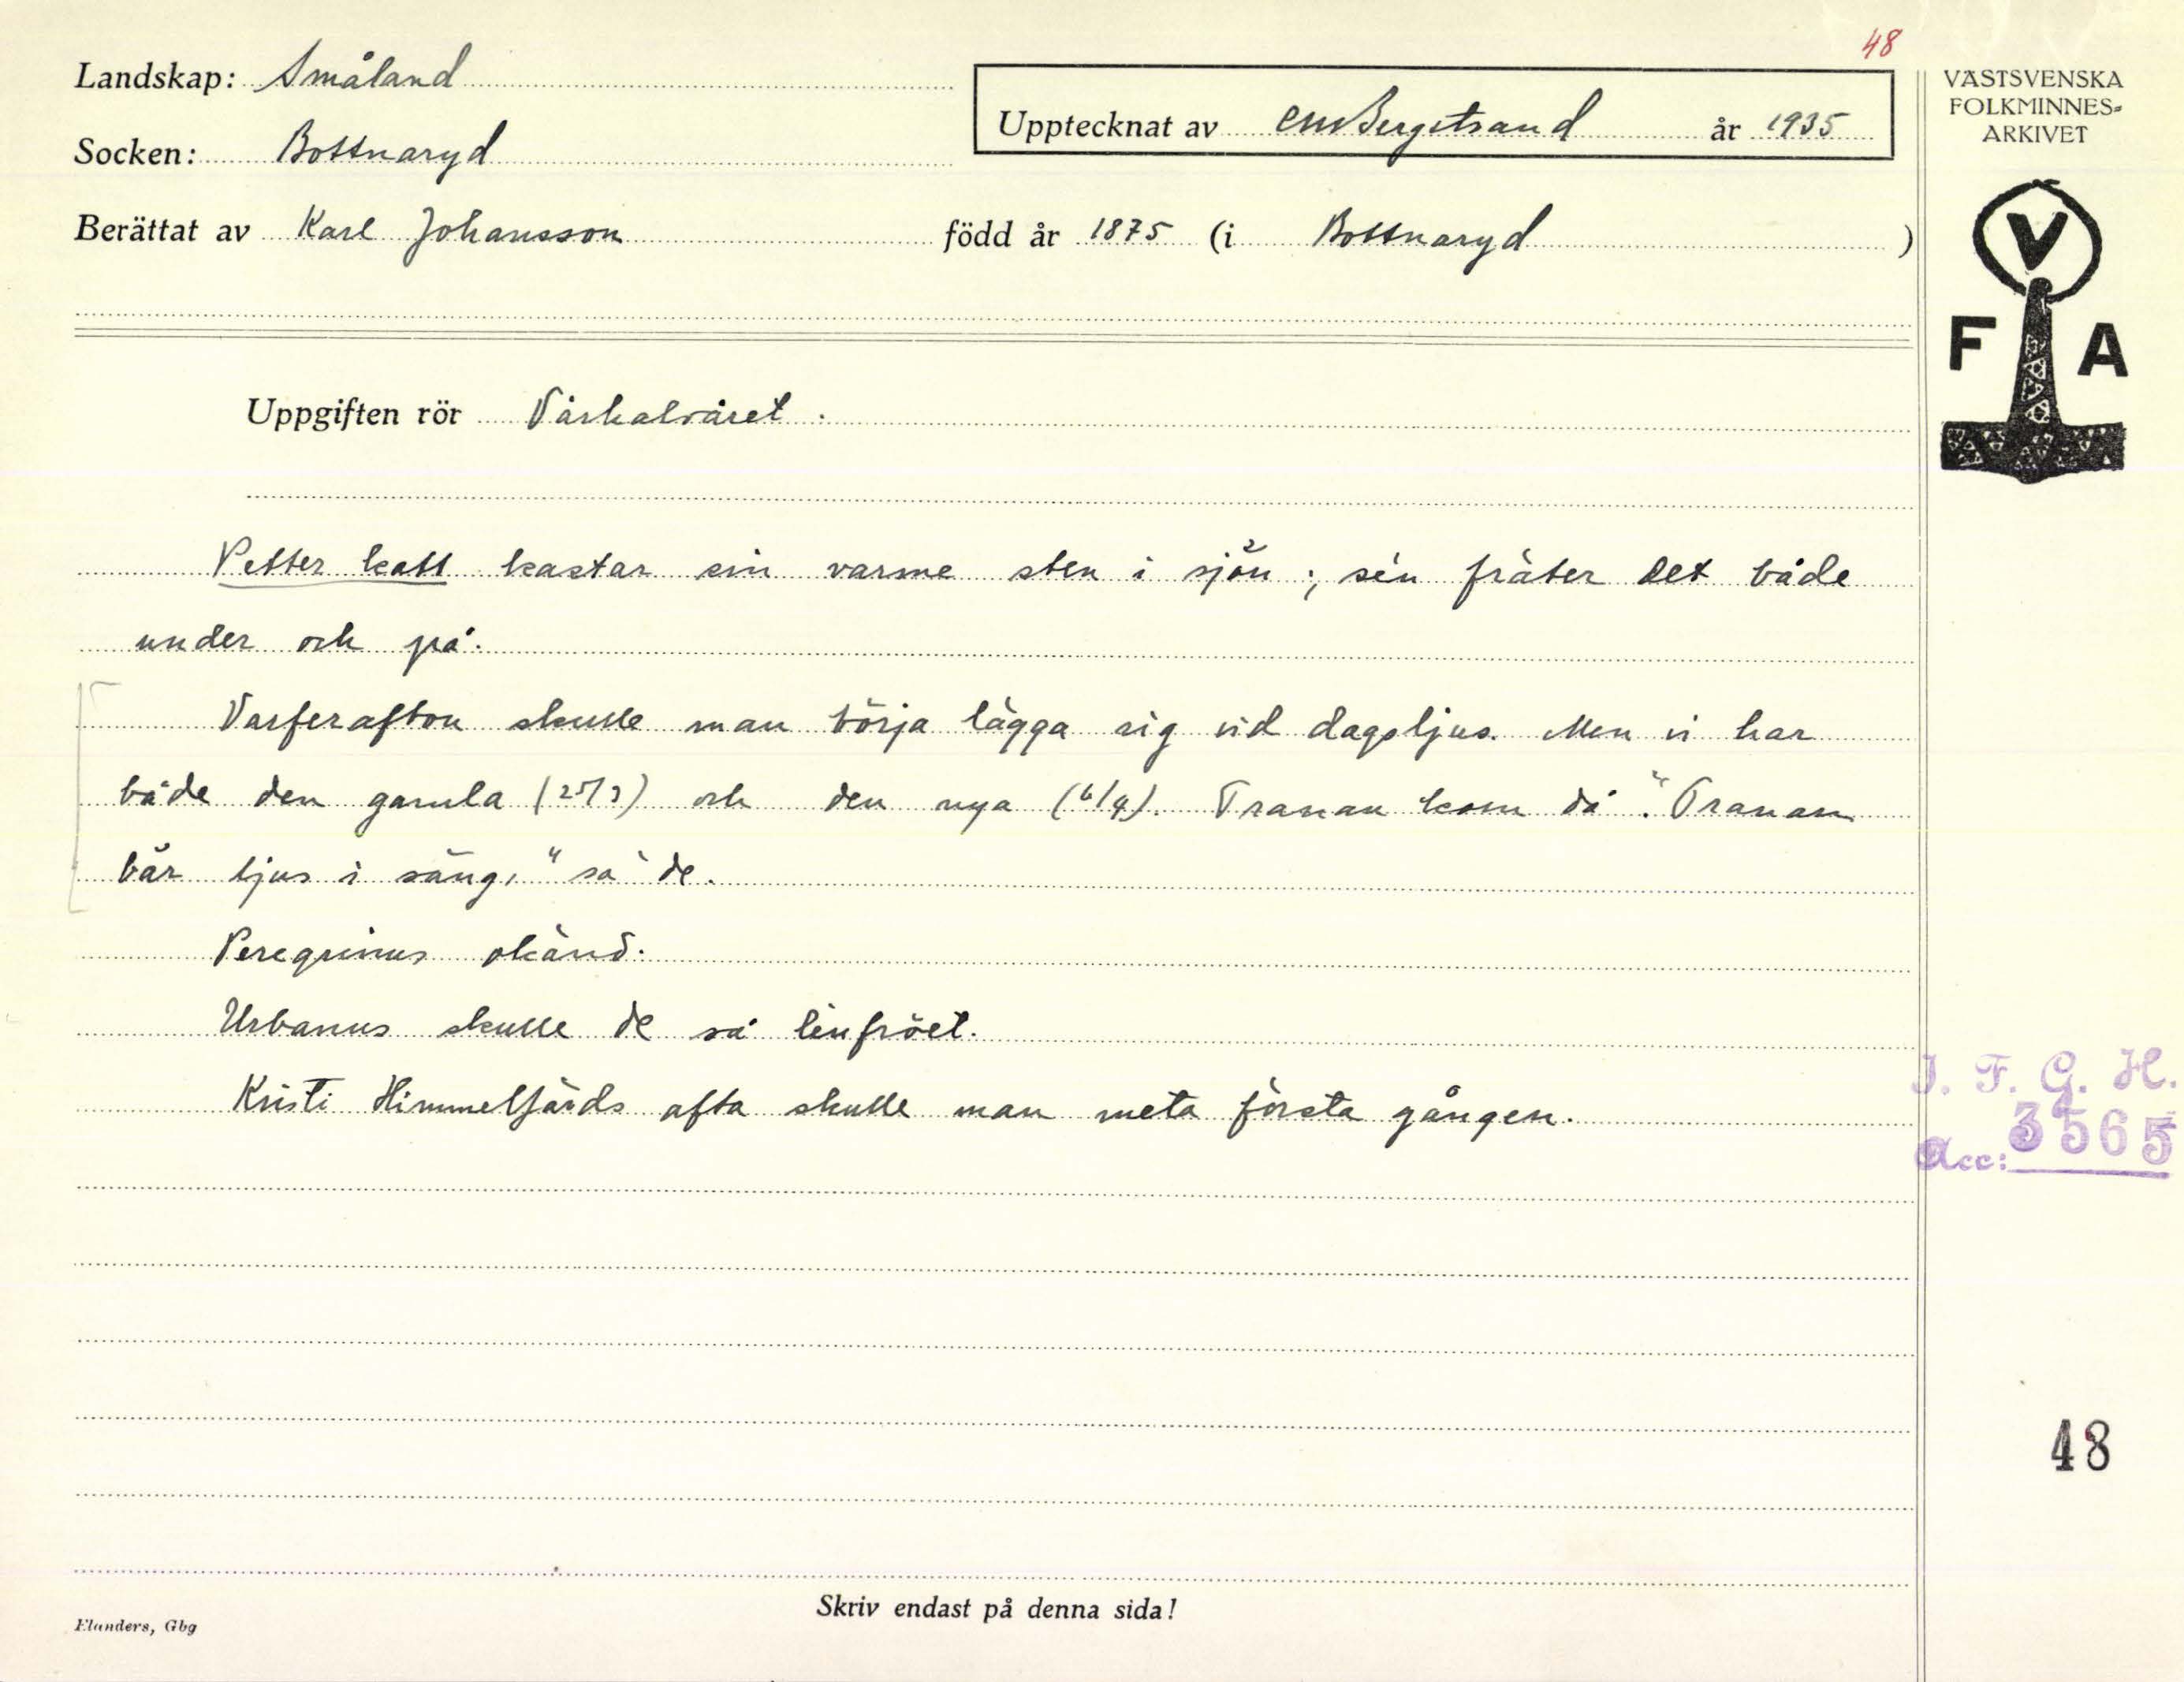 48
Landskap: Småland
Upptecknat av CMBergstrand år 1935
VÄSTSVENSKA
FOLKMINNES-
ARKIVET
Socken: Bottnaryd
Berättat av Karl Johansson född år 1875 (i Bottnaryd )
V
F A
Uppgiften rör Vårhalvåret.
Petter katt kastar sin varme sten i sjön; sén fräter det både
under och på.
Varferafton skulle man börja lägga sig vid dagsljus. Men vi har
både den gamla (25/3) och den nya (6/4). Tranan kom då. "Tranan
bär ljus i säng," sa de.
Peregrinus okänd.
Urbanus skulle de så linfröet.
Kristi Himmelfärds afta skulle man meta första gången.
I. F. G. H.
Acc: 3565
48
Skriv endast på denna sida!
Elanders, Gbg